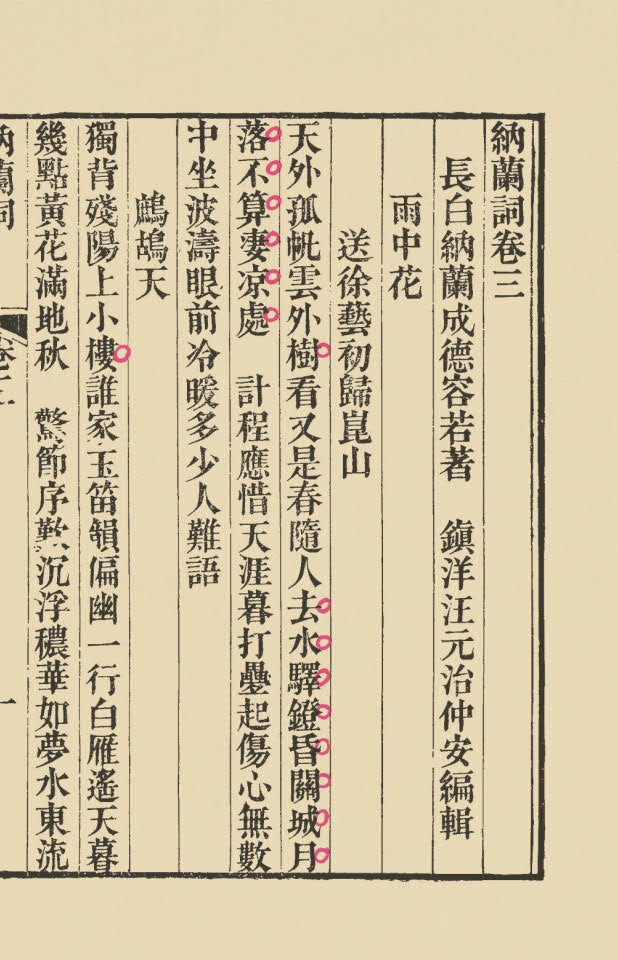 納蘭詞卷三
長白納蘭成德容若著 鎮洋汪元治仲安編輯
雨中花
送徐藝初歸崑山
天外孤帆雲外樹看又是春隨人去水驛鐙昏關城月
落不算淒凉處 計程應惜天涯暮打疊起傷心無數
中坐波濤眼前冷暖多少人難語
鷓鴣天
獨背殘陽上小樓誰家玉笛韻偏幽一行白雁遙天暮
幾點黃花滿地秋 驚節序歎沉浮穠華如夢水東流
納蘭詞
一